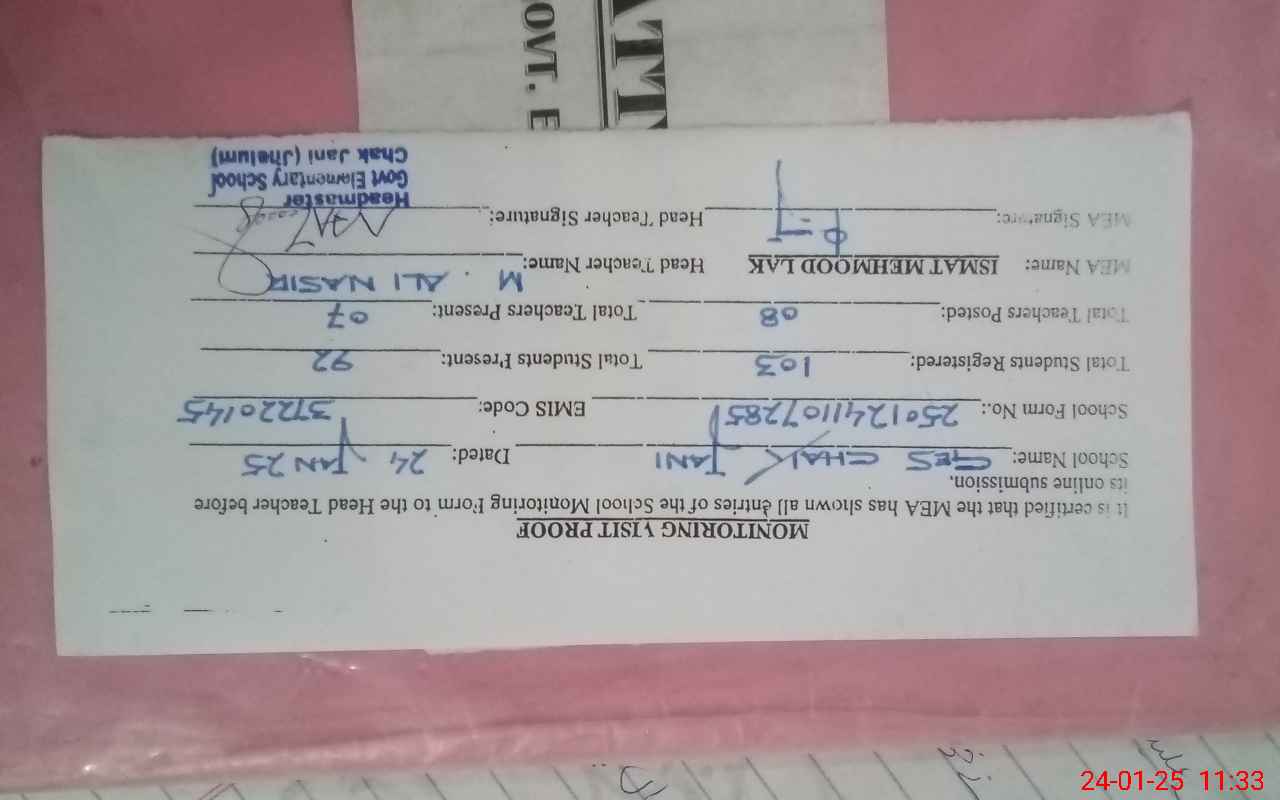 MONITORING VISIT PROOF
It is certified that the MEA has shown all entries of the School Monitoring Form to the Head Teacher before
its online submission.
School Name: GES CHAK JANI Dated: 24 JAN 25
School Form No.: 2501241107285 EMIS Code: 37220145
Total Students Registered: 103 Total Students Present: 92
Total Teachers Posted: 08 Total Teachers Present: 07
MEA Name: ISMAT MEHMOOD LAK Head Teacher Name: M. ALI NASIR
MEA Signature: Head Teacher Signature:
Headmaster
Govt Elementary School
Chak Jani (Jhelum)
OVT. E
ATM
24-01-25 11:33